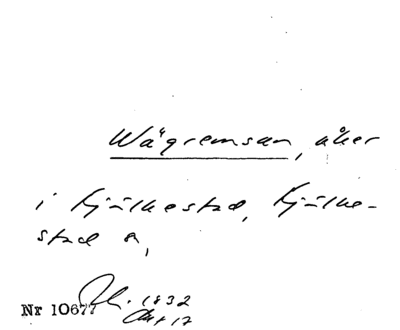 Wägremsan, åker
i Kjulkestad, Kjulke-
stad
Nr 10677 1832
Akt 17